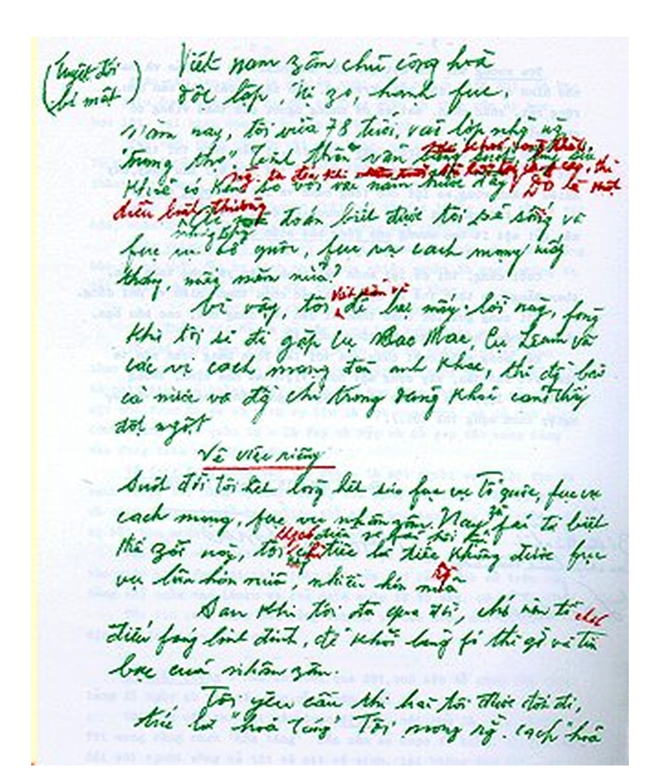 (Tuyệt đối
bí mật)
Việt nam zân chủ cộng hoà
độc lập tự zo hạnh fúc
Năm nay, tôi vừa 78 tuổi, vào lớp những
"trung thọ". Tinh thần vẫn
khoẻ có kém so với vài năm trước đây. Đó là một
điều bình thường
toán biết được tôi sẽ sống và
fục vụ tổ quốc, fục vụ cách mạng mấy
tháng, mấy năm nữa?
Vì vậy, tôi viết sẵn để lại mấy lời này, fòng
khi tôi sẽ đi gặp cụ Các Mác, cụ Lênin và
các vị cách mạng đàn anh khác, thì đồng bào
cả nước và đồng chí trong đảng khỏi cảm thấy
đột ngột.
Về việc riêng
Suốt đời tôi hết lòng hết sức fục vụ Tổ quốc, fục vụ
cách mạng, fục vụ nhân zân. Nay zù fải từ biệt
thế zới này, tôi
chỉ tiếc là tiếc không được fục
vụ lâu hơn nữa, nhiều hơn nữa
Sau khi tôi đã qua đời, chớ nên tổ chức
điếu fúng linh đình, để khỏi lãng fí thì zờ và tiền
bạc của nhân zân.
Tôi yêu cầu thi hài tôi được đốt đi,
tức là "hoả táng". Tôi mong rằng cách "hoả